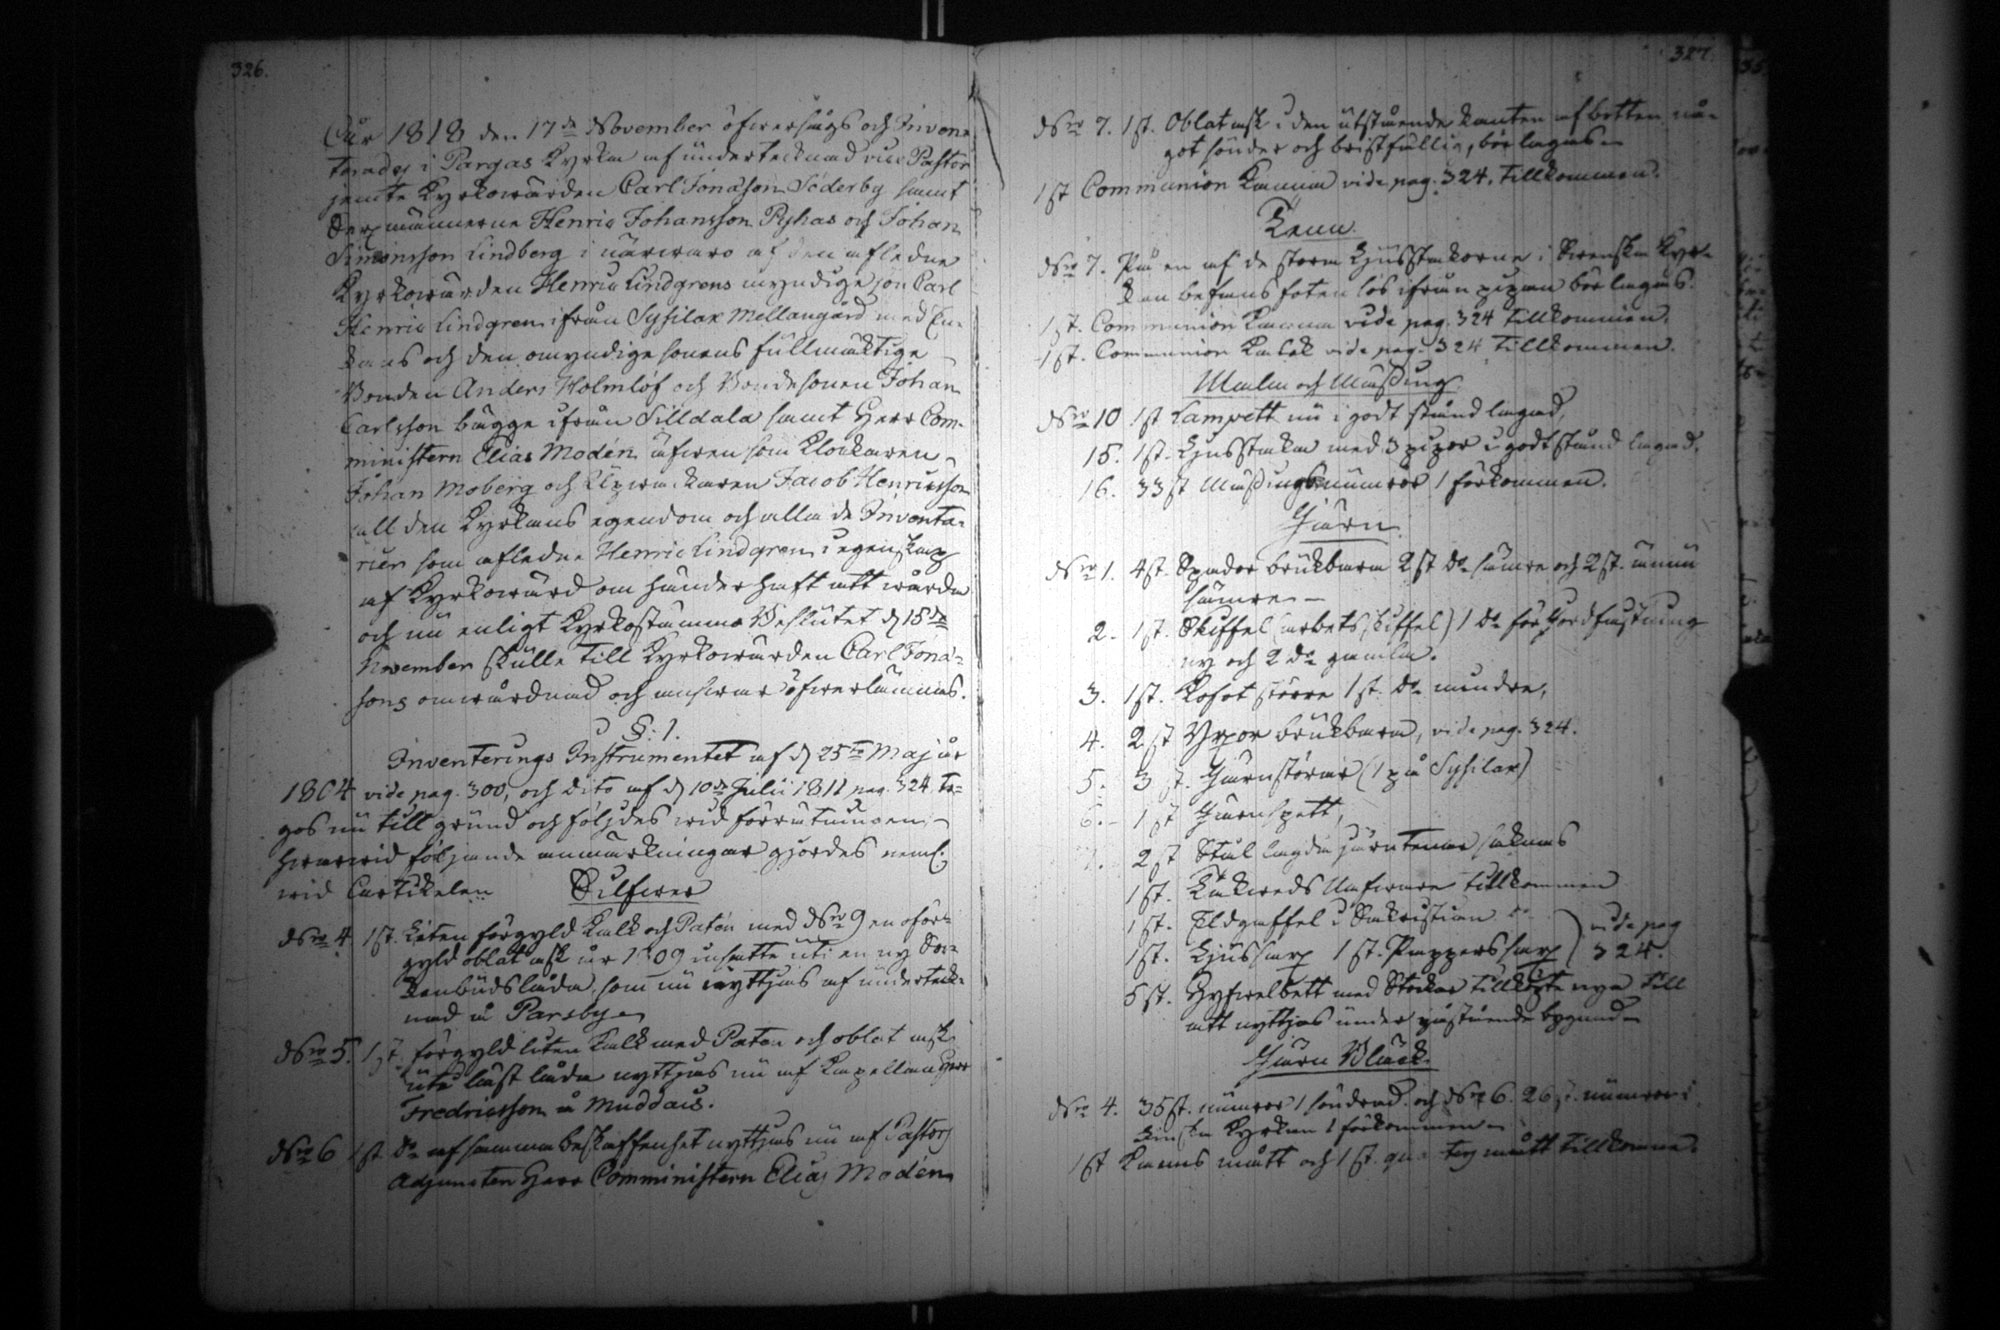 326.
År 1818 den 17de November öfwersågs och Inven-
terades i Pargas Kyrka af undertecknad vice Pastor
jemte Kyrkowärden Carl Jonasson Söderby samt
Sexmännerne Henric Johansson Pyhas och Johan
Simonsson Lindberg i närwaro af den afledne
Kyrkowärden Henric Lindgrens myndige son Carl
Henric Lindgren ifrån Sysilax Mellangård med En-
kans och den omyndige sonens fullmäktige
Bonden Anders Holmlöf och Bondesonen Johan
Carlsson bägge ifrån Silldala samt Herr Com-
ministern Elias Modén äfwen som Klockaren
Johan Moberg och Uppwäckaren Jacob Henricsson
all den Kyrkans egendom och alla de Inventa-
rier som afledne Henric Lindgren i egenskap
af Kyrkowärd om händer haft att wårda
och nu enligt Kyrkostämmo Beslutet d 15de
November skulle till Kyrkowärden Carl Jona-
sons omwårdnad och answar öfwerlämnas.
§: 1.
Inventerings Instrumentet af d 25te Maj år
1804 vide pag. 300, och dito af d 10de Julii 1811 pag. 324 to-
gos nu till grund och följdes wid förrättningen
hwarwid följande anmärkningar gjordes neml.
wid Artikelen Silfwer
No 4. 1st. Liten förgyld Kalk och Patén med No 9 en oför-
gyld oblat ask år 1809 insatte uti en ny Soc-
kenbudslåda, som nu nyttjas af underteck-
nad å Parsby
No 5. 1st. förgyld liten Kalk med Paten och oblat ask
uti låst låda nyttjas nu af Kapellan Herr
Fredricsson å Muddais.
No 6 1st. do af samma beskaffenhet nyttjas nu af Pastors
Adjuncten Herr Comministern Elias Modén
327.
No 7. 1st. Oblat ask i den utstående kanten af botten nå-
got sönder och bristfällig, bör lagas
1st Communion Kanna vide pag. 324. tillkommen.
Tenn.
No 7. På en af de stora Ljusstakarne i Swenska Kyr-
kan befans foten lös ifrån pipan bör lagas.
1st. Communion Kanna vide pag. 324 tillkommen.
1st. Communion Kalk vide pag. 324 tillkommen.
Malm och Mässing.
No 10 1st Lampett nu i godt stånd lagad,
15. 1st. Ljusstaka med 3 pipor i godt stånd lagad.
16. 33 st Mässings numror 1 förkommen.
Järn
No 1. 4st. Spador brukbara 2 st do sämre och 2 st. ännu
sämre
2. 1st. Skiffel (arbets skiffel) 1 do för Jordfästning
ny och 2 do gamla.
3. 1st. Kofot större 1 st. do mindre,
4. 2 st Yxor brukbara, vide pag. 324.
5. 3 st. Järnstörar (1 på Sysilax)
6. 1 st Järnspett,
7. 2 st Stållagda järntenar saknas
1st. Kakweds Ugnware tillkommen
1st. Eldgaffel i Sakristian do
1st. Ljussax 1 st. Pappersssax } vide pag 324.
5 st. Hyfwelbett med Stockar tillköpte nya till
att nyttjas under påstående byggnad
Järn Bläck.
No 4. 35 st. numror 1 söndrad. och No 6. 26 st. numror i
Finska Kyrkan 1 förkommen
1st Kanns mått och 1 st. quarters mått tillkomna.